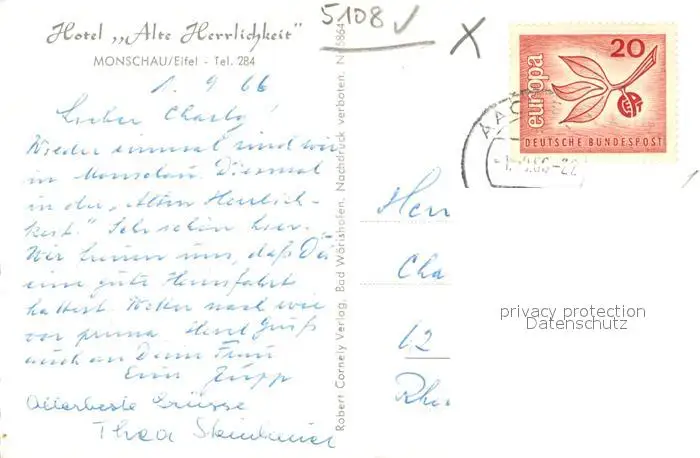 Hotel „Alte Herrlichkeit"
MONSCHAU/Eifel - Tel. 284
1. 9. 66
Lieber Charly
Wieder einmal sind wir
in Monschau. Diesmal
in der „Alten Herrlich-
keit." Sehr schön hier.
Wir freuen uns, daß Du
eine gute Heimfahrt
hattest. Wetter nach wie
vor prima. Herzl. Grüße
auch an Deine Frau
Euer Jupp
Allerbeste Grüsse
Thea
Robert Cornely Verlag, Bad Wörishofen, Nachdruck verboten. Nr. 5864
5108
europa
20
DEUTSCHE BUNDESPOST
AAC
Herr
Cha
62
Rhe
privacy protection
Datenschutz